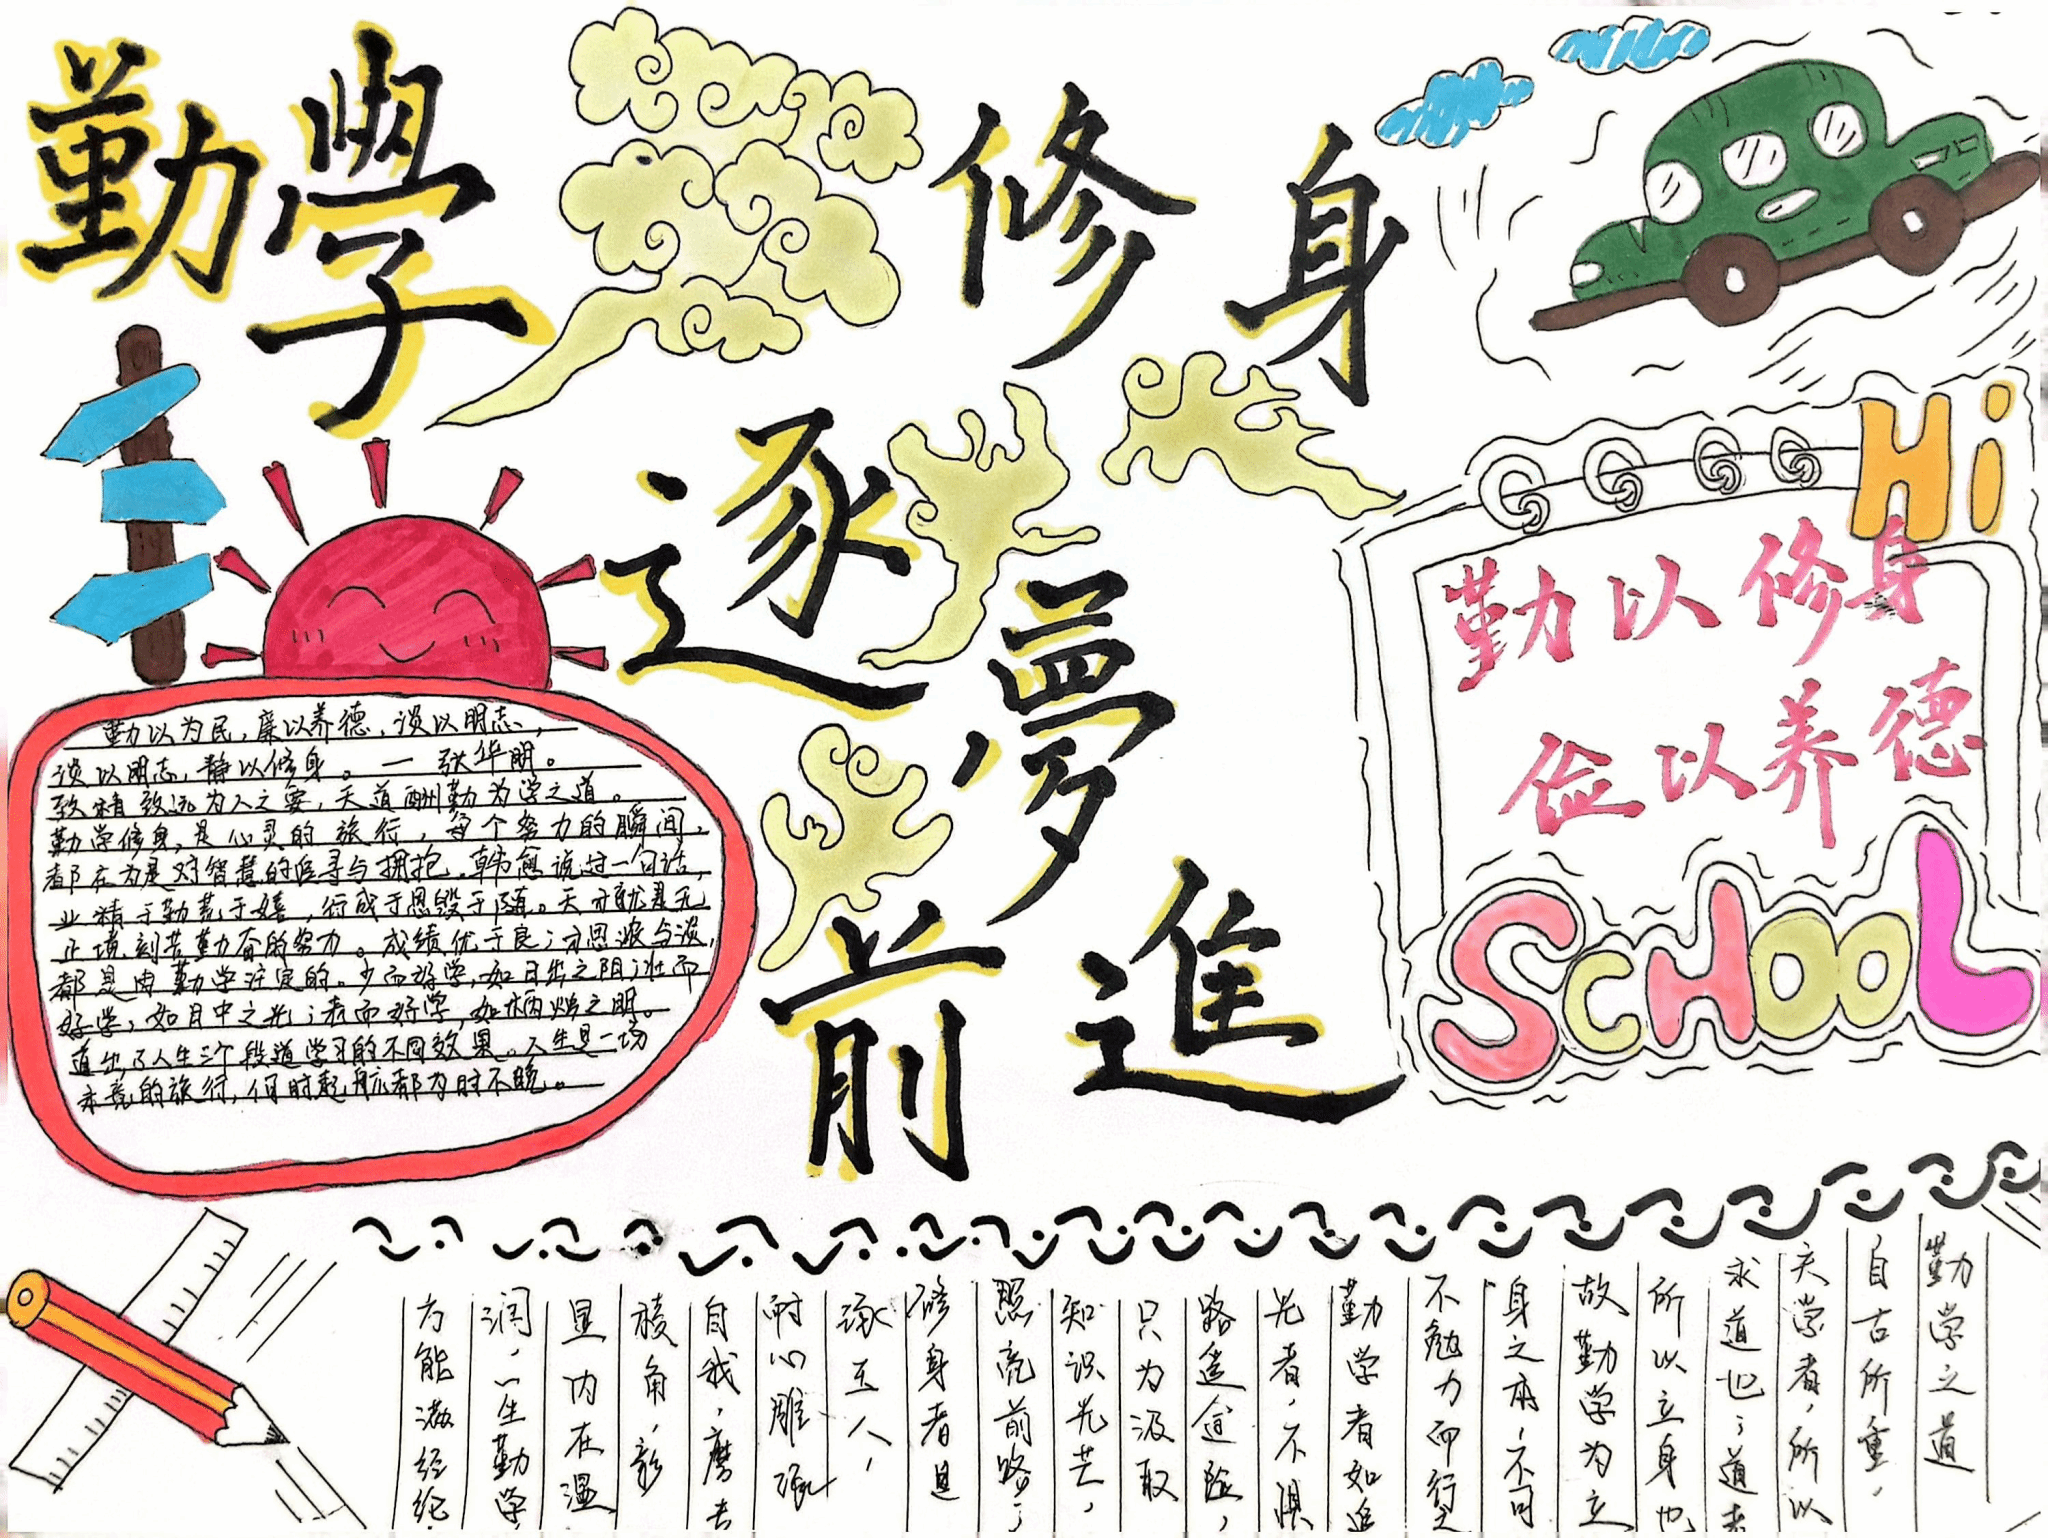 勤學
修身
逐夢
前進
Hi
勤以修身
俭以养德
SCHOOL
勤以为民，廉以养德，淡以明志，
淡以明志，静以修身。一张华朋。
致精致远为人之要，天道酬勤为学之道。
勤学修身，是心灵的旅行，每个努力的瞬间，
都在为是对智慧的追寻与拥抱。韩愈说过一句话，
业精于勤荒于嬉，行成于思毁于随。天才就是无
止境刻苦勤奋的努力。成绩优于良；才思波与淡，
都是由勤学注定的。少而好学，如日出之阳；壮而
好学，如日中之光；老而好学，如柄烛之明。
道出了人生三个段道学习的不同效果。人生是一场
未竟的旅行，何时起航都为时不晚。
勤学之道
自古所重，
夫学者，所以
求道也；道者
所以立身也
故勤学为立
身之本，不可
不勉力而行之
勤学者如追
光者，不惧
路遥途险，
只为汲取
知识光芒，
照亮前路；
修身者是
琢玉人，
耐心雕琢
自我，磨去
棱角，彰
显内在温
润，一生勤学
方能满经纶